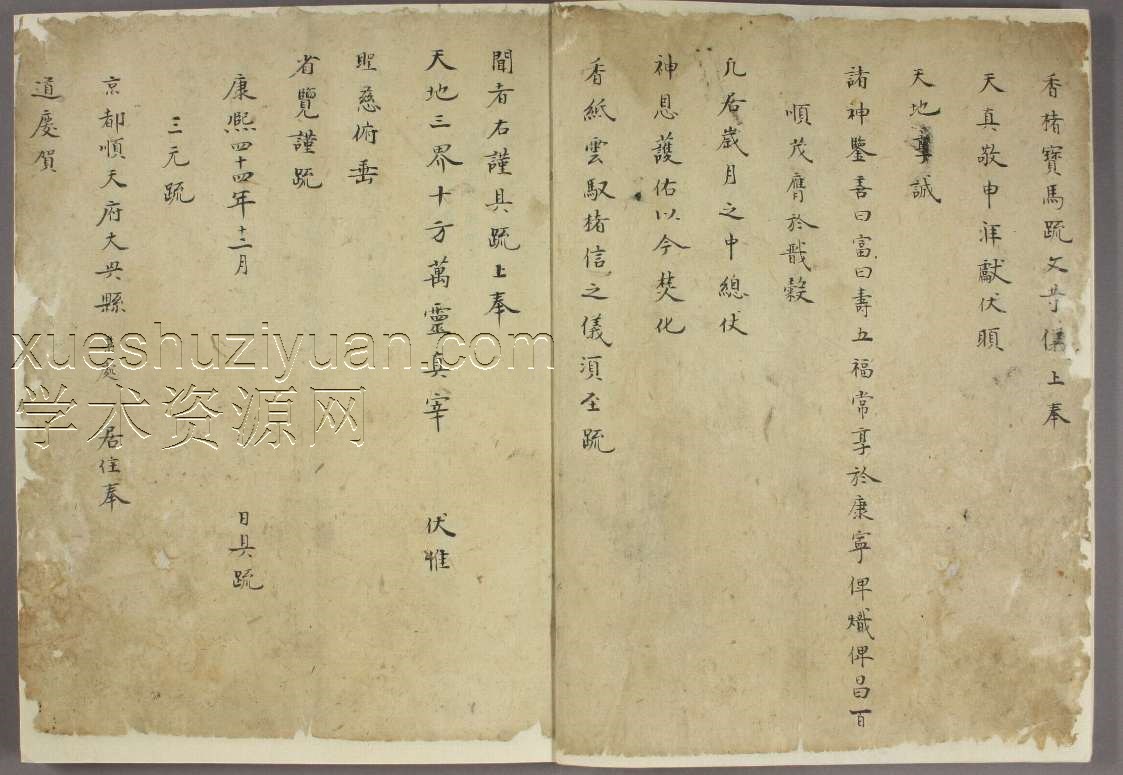 香楮寶馬䟽文等儀上奉
天真敬申淮獻伏願
天地享誠
諸神鑒善曰富曰壽五福常享於康寧俾熾俾昌百
順茂膺於戩穀
凢居歲月之中總伏
神恩護佑以今焚化
香紙雲馭楮信之儀湏至䟽
聞者右謹具䟽上奉
天地三界十方萬靈真宰 伏惟
聖慈俯垂
省覽謹䟽
康熙四十四年十二月 日具䟽
三元䟽
京都順天府大興縣 居住奉
道慶賀
xueshuziyuan.com
学术资源网